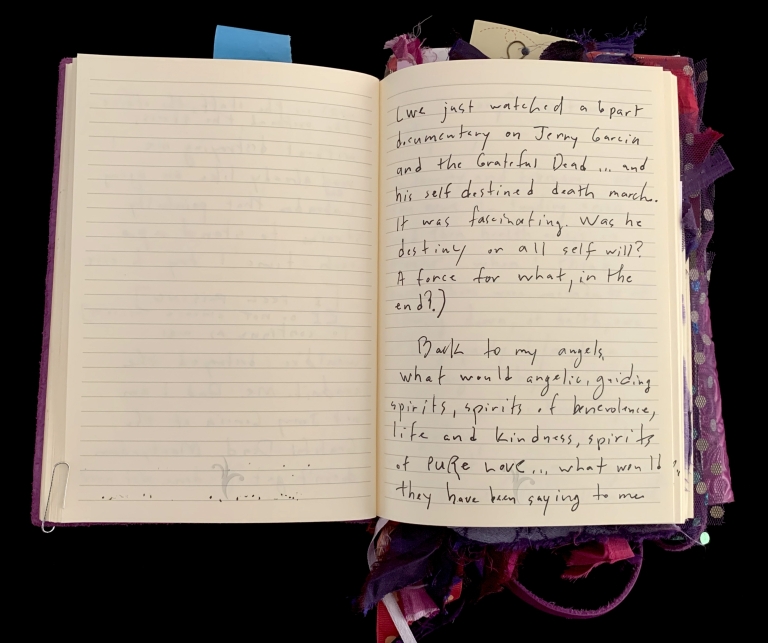 (we just watched a 6 part
documentary on Jerry Garcia
and the Grateful Dead ... and
his self destined death march.
It was fascinating. Was he
destiny or all self will?
A force for what, in the
end?.)
Back to my angels,
what would angelic, guiding
spirits, spirits of benevolence,
life and kindness, spirits
of PURE LOVE... what would
they have been saying to me